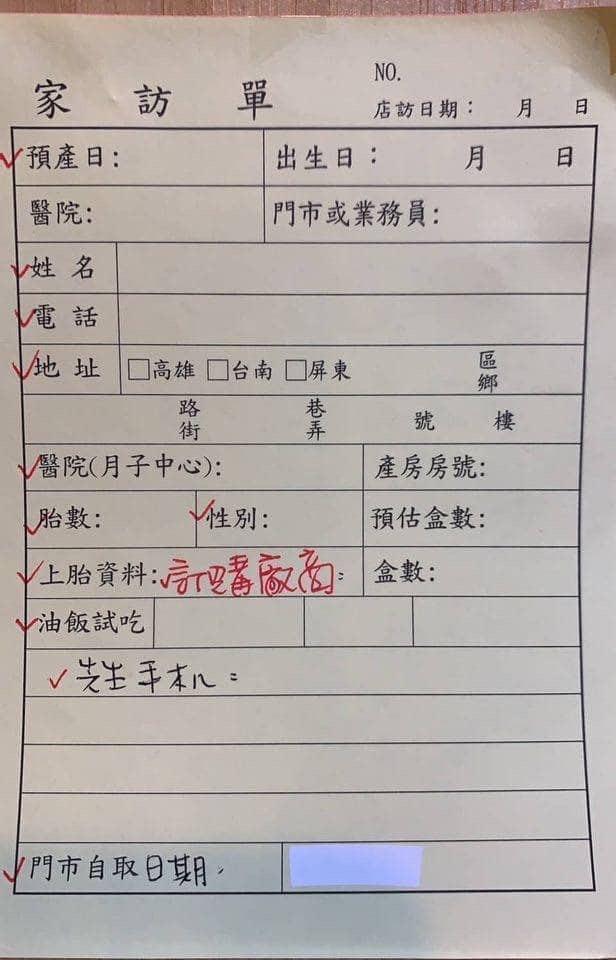 NO.
家訪單
店訪日期： 月 日
預產日： 出生日： 月 日
醫院： 門市或業務員：
姓名
電話
地址 □高雄 □台南 □屏東 區鄉
路街 巷弄 號 樓
醫院(月子中心)： 產房房號：
胎數： 性別： 預估盒數：
上胎資料：訂購廠商： 盒數：
油飯試吃
先生手机：
門市自取日期.